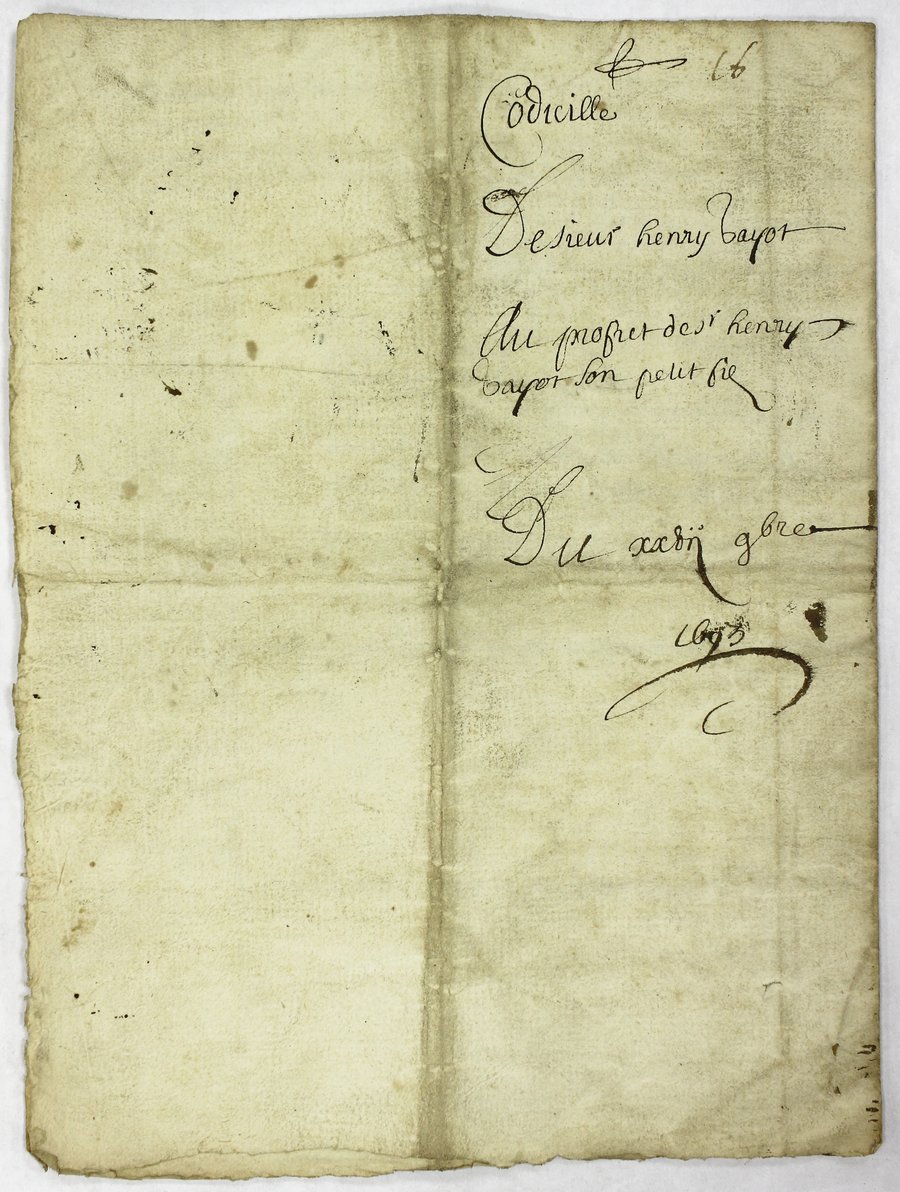 16
Codicille
De sieur henry vayot
Au profiet de sr henry
vayot son petit fie
Du xxviij 9bre
1693